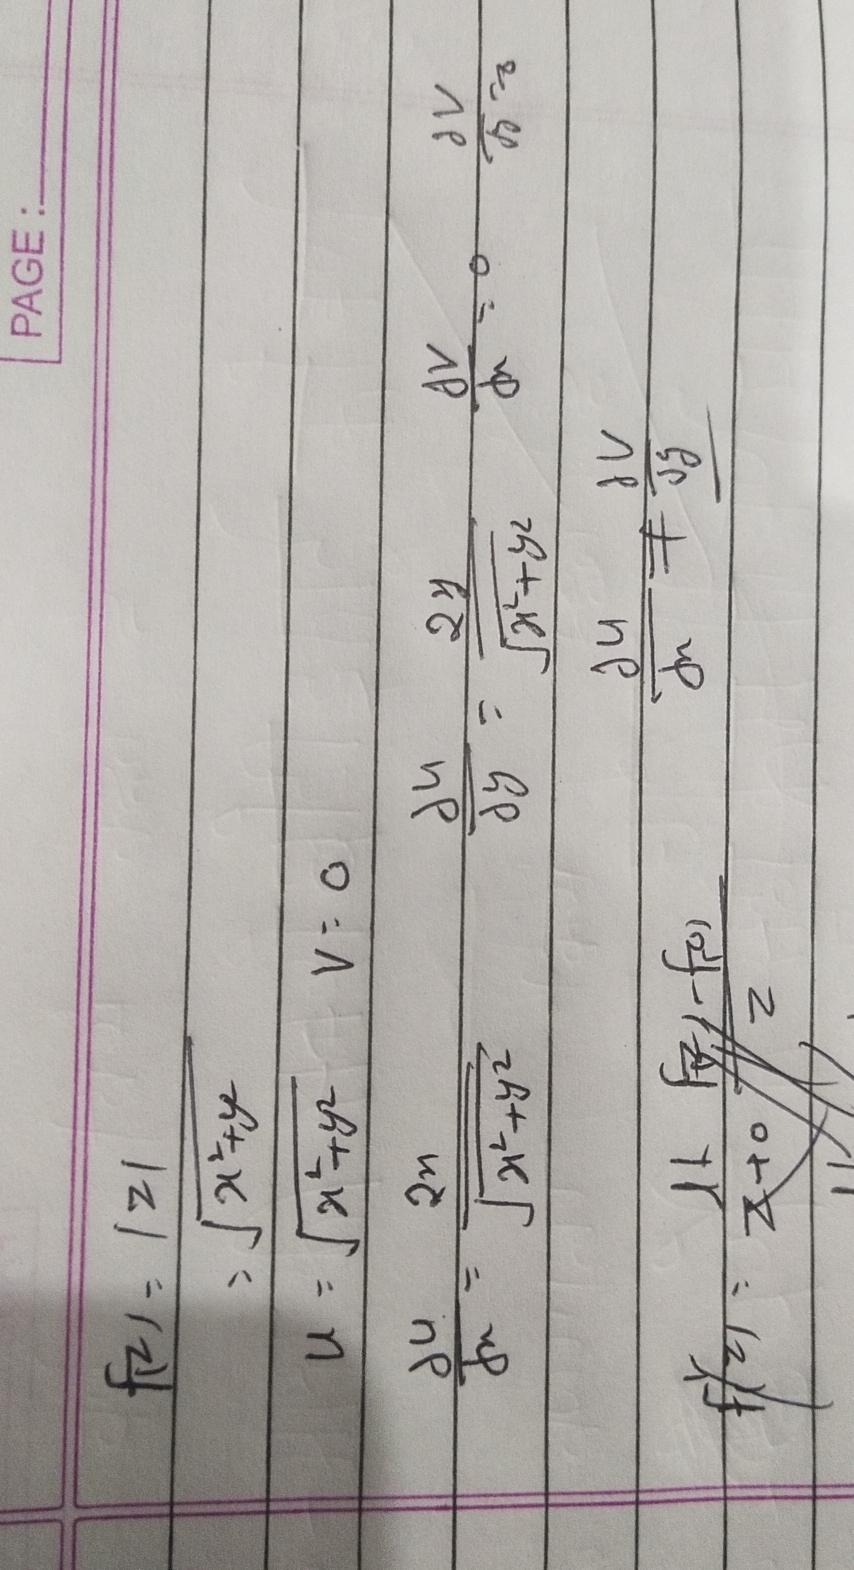 PAGE :
f(z) = |z|
= √(x²+y²)
u = √(x²+y²) v = 0
∂u/∂x = 2x/√(x²+y²) ∂u/∂y = 2y/√(x²+y²) ∂v/∂x = 0 ∂v/∂y =
∂u/∂x ≠ ∂v/∂y
f'(z) = lt z→0 f(z) - f(0) / z